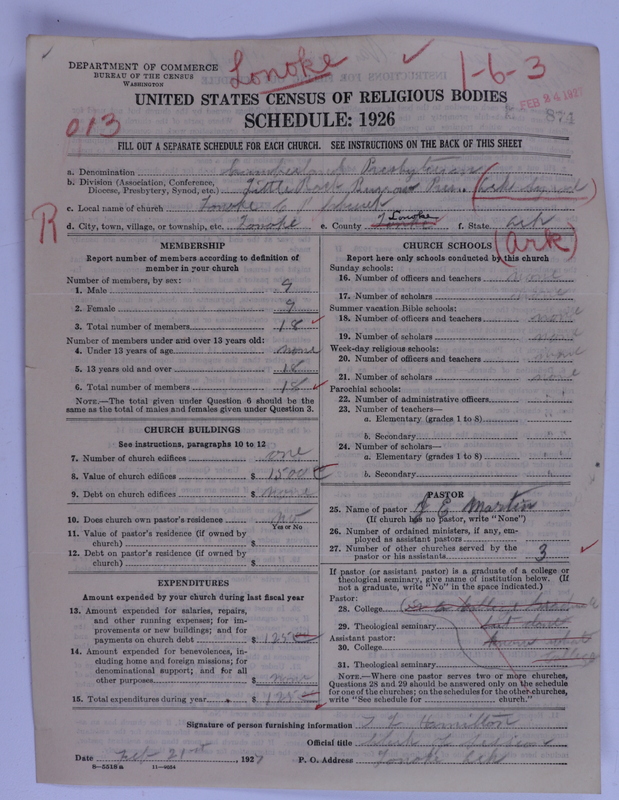 DEPARTMENT OF COMMERCE
BUREAU OF THE CENSUS
WASHINGTON
Lonoke
1-6-3
UNITED STATES CENSUS OF RELIGIOUS BODIES
FEB 24 1927
SCHEDULE: 1926
871
013
FILL OUT A SEPARATE SCHEDULE FOR EACH CHURCH. SEE INSTRUCTIONS ON THE BACK OF THIS SHEET
a. Denomination Cumberland Presbyterian
b. Division (Association, Conference, Diocese, Presbytery, Synod, etc.) Little Rock Pres. (Ark Synod
c. Local name of church Lonoke C P Church
R
d. City, town, village, or township, etc. Lonoke e. County Lonoke f. State Ark
(Ark)
MEMBERSHIP
Report number of members according to definition of member in your church
Number of members, by sex:
1. Male 9
2. Female 9
3. Total number of members 18
Number of members under and over 13 years old:
4. Under 13 years of age none
5. 13 years old and over 18
6. Total number of members 18
NOTE.—The total given under Question 6 should be the same as the total of males and females given under Question 3.
CHURCH BUILDINGS
See instructions, paragraphs 10 to 12
7. Number of church edifices one
8. Value of church edifices $ 1500
9. Debt on church edifices $ none
10. Does church own pastor's residence No
Yes or No
11. Value of pastor's residence (if owned by church) $
12. Debt on pastor's residence (if owned by church) $
EXPENDITURES
Amount expended by your church during last fiscal year
13. Amount expended for salaries, repairs, and other running expenses; for improvements or new buildings; and for payments on church debt $ 125
14. Amount expended for benevolences, including home and foreign missions; for denominational support; and for all other purposes $ none
15. Total expenditures during year $ 125
CHURCH SCHOOLS
Report here only schools conducted by this church
Sunday schools:
16. Number of officers and teachers none
17. Number of scholars none
Summer vacation Bible schools:
18. Number of officers and teachers none
19. Number of scholars none
Week-day religious schools:
20. Number of officers and teachers none
21. Number of scholars none
Parochial schools:
22. Number of administrative officers
23. Number of teachers—
a. Elementary (grades 1 to 8)
b. Secondary
24. Number of scholars—
a. Elementary (grades 1 to 8)
b. Secondary
PASTOR
25. Name of pastor J E Martin
(If church has no pastor, write "None")
26. Number of ordained ministers, if any, employed as assistant pastors
27. Number of other churches served by the pastor or his assistants 3
If pastor (or assistant pastor) is a graduate of a college or theological seminary, give name of institution below. (If not a graduate, write "No" in the space indicated.)
Pastor:
28. College
29. Theological seminary
Assistant pastor:
30. College
31. Theological seminary
NOTE.—Where one pastor serves two or more churches, Questions 28 and 29 should be answered only on the schedule for one of the churches; on the schedules for the other churches, write "See schedule for church."
Signature of person furnishing information Hamilton
Official title Clerk of Session
Date Feb 21st, 1927 P. O. Address Lonoke Ark
8—5518a 11—9034